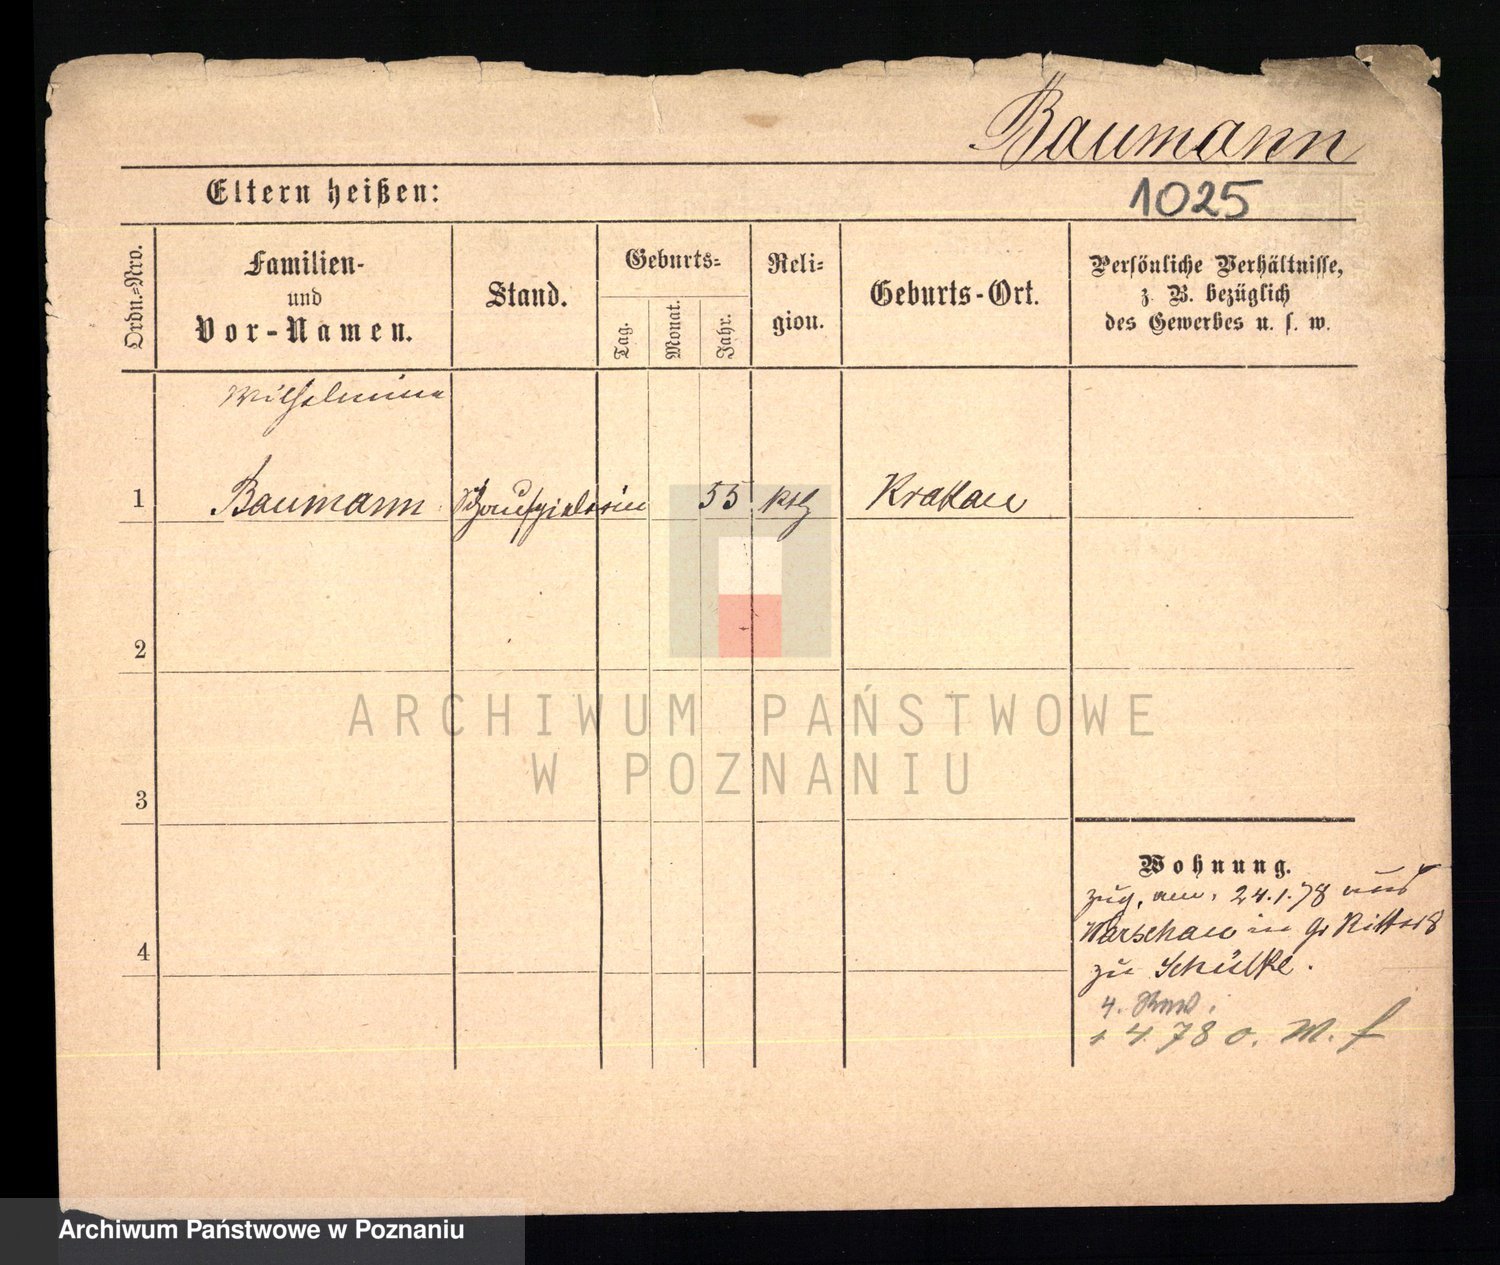 Baumann
Eltern heißen:
1025
Ordn.-Nro.
Familien-
und
Vor-Namen.
Stand.
Geburts-
Tag.
Monat.
Jahr.
Reli-
gion.
Geburts-Ort.
Persönliche Verhältnisse,
z. B. bezüglich
des Gewerbes u. s. w.
Wilhelmine
1 Baumann Schauspielerin 55 kth Krakau
2
3
4
Wohnung.
zug. am. 24.1.78 aus
Warschau in Gr Ritterst
zu Schülke.
4. 78 o. M. f
ARCHIWUM PAŃSTWOWE
W POZNANIU
Archiwum Państwowe w Poznaniu